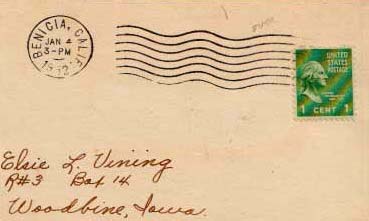 BENICIA, CALIF.
JAN 4
3-PM
UNITED
STATES
POSTAGE
1 CENT 1
Elsie L. Vining
R#3 Box 14
Woodbine, Iowa.